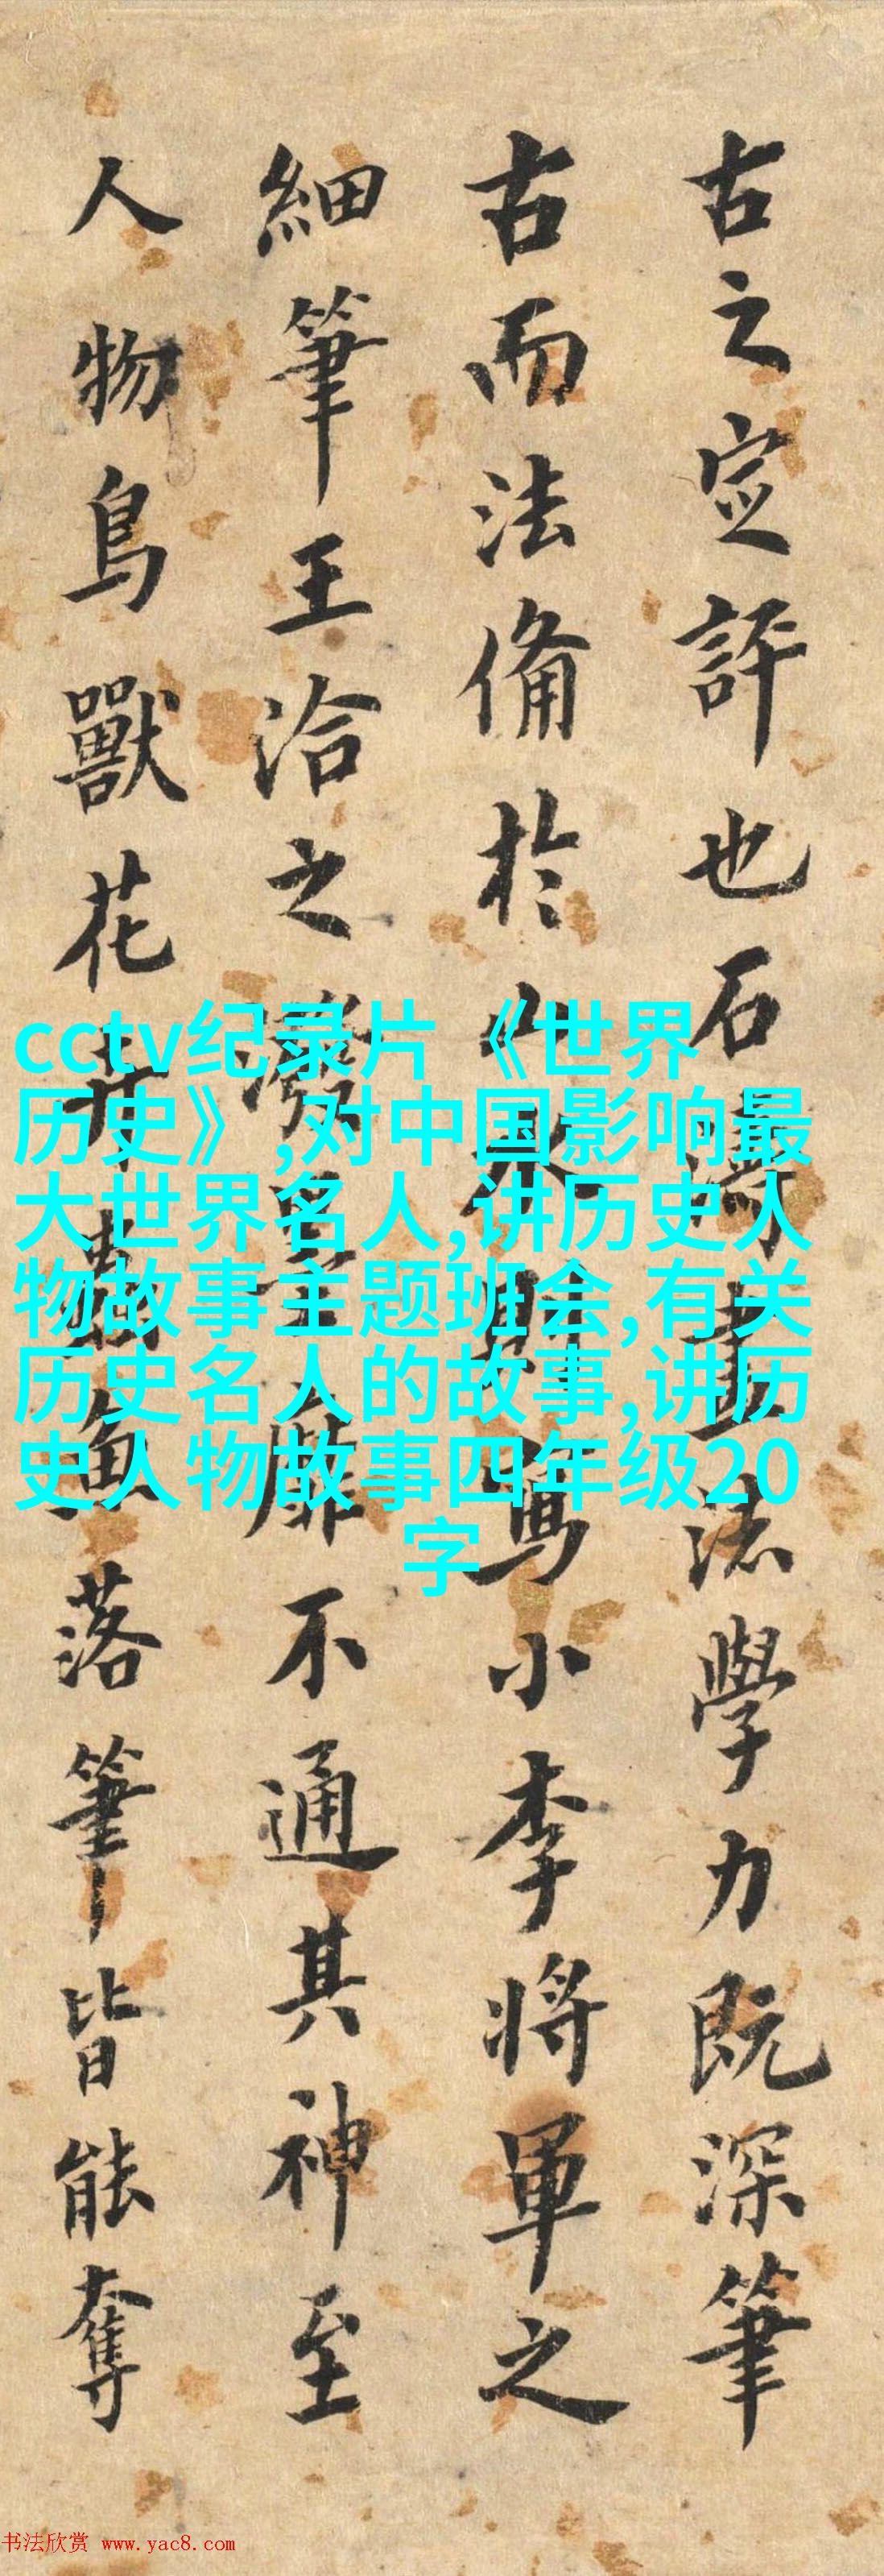 古之定評也石濤畫法學力既深筆
古而法備於山水則寫小李將軍之
細筆王洽之潑墨靡不通其神至
人物鳥獸花卉蟲魚落筆皆能奪
cctv纪录片《世界
历史》,对中国影响最
大世界名人,讲历史人
物故事主题班会,有关
历史名人的故事,讲历
史人物故事四年级20
字
书法欣赏 www.yac8.com